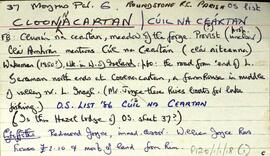 37 Moyrus Pa. 6. ROUNDSTONE R.C. PARISH OS list
CLOONACARTAN / CÚIL NA CEARTAN
FB: Cluain na ceartan, meadow of the forge. Provost
Cléu Ambróin mentions Cúl na Ceartan (cláí aiteanna)
Wakeman (1850?), Wk. in W. of Ireland, p. : the road from "end of L.
Garaman north ends at Coornacartan, a farm house in middle
of valley nr L. Inagh. (Mr Joyce there hires boats for lake
fishing). O.S. LIST '86 CÚIL NA CEARTAN
(Is this Hazel lodge of OS. sheet 37?)
Griffiths Redmond Joyce, immed. lessor. William Joyce has
house £2.10 & most of land from him. P120/1/1/18 (1)